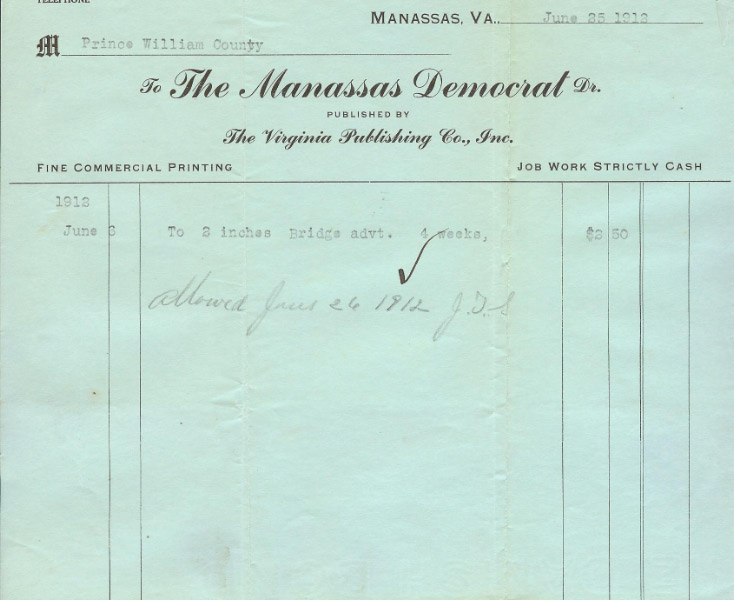 TELEPHONE
MANASSAS, VA., June 25 1912
M Prince William County
To The Manassas Democrat Dr.
PUBLISHED BY
The Virginia Publishing Co., Inc.
FINE COMMERCIAL PRINTING JOB WORK STRICTLY CASH
1912
June To 2 inches Bridge advt. 4 weeks, $2 50
Allowed June 26 1912 J.T.S